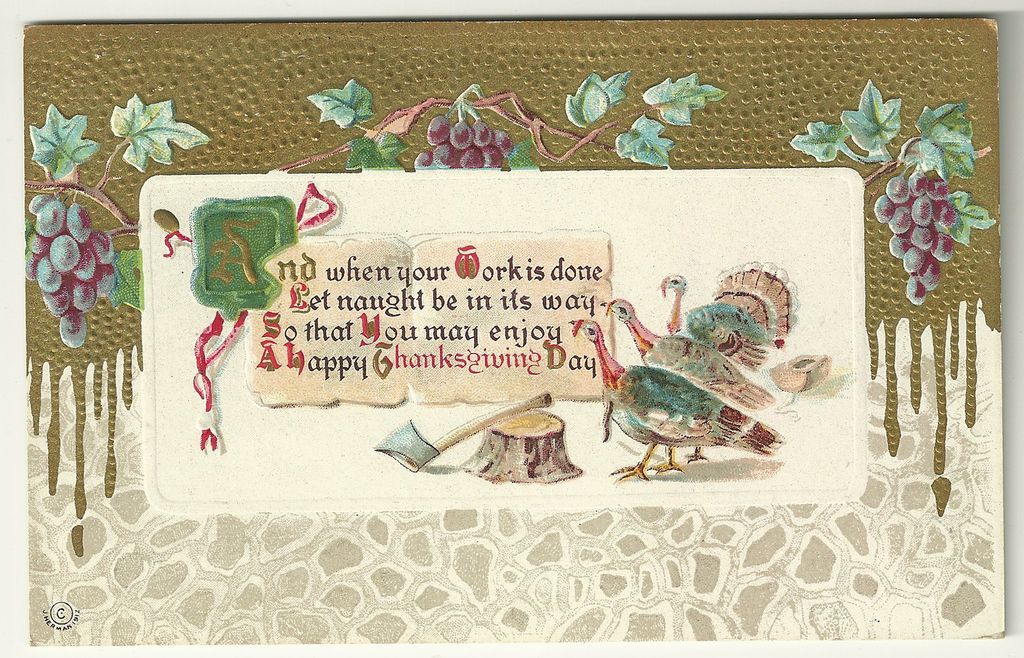 And when your Work is done
Let naught be in its way
So that You may enjoy
A happy Thanksgiving Day
© J. HERMAN 1912